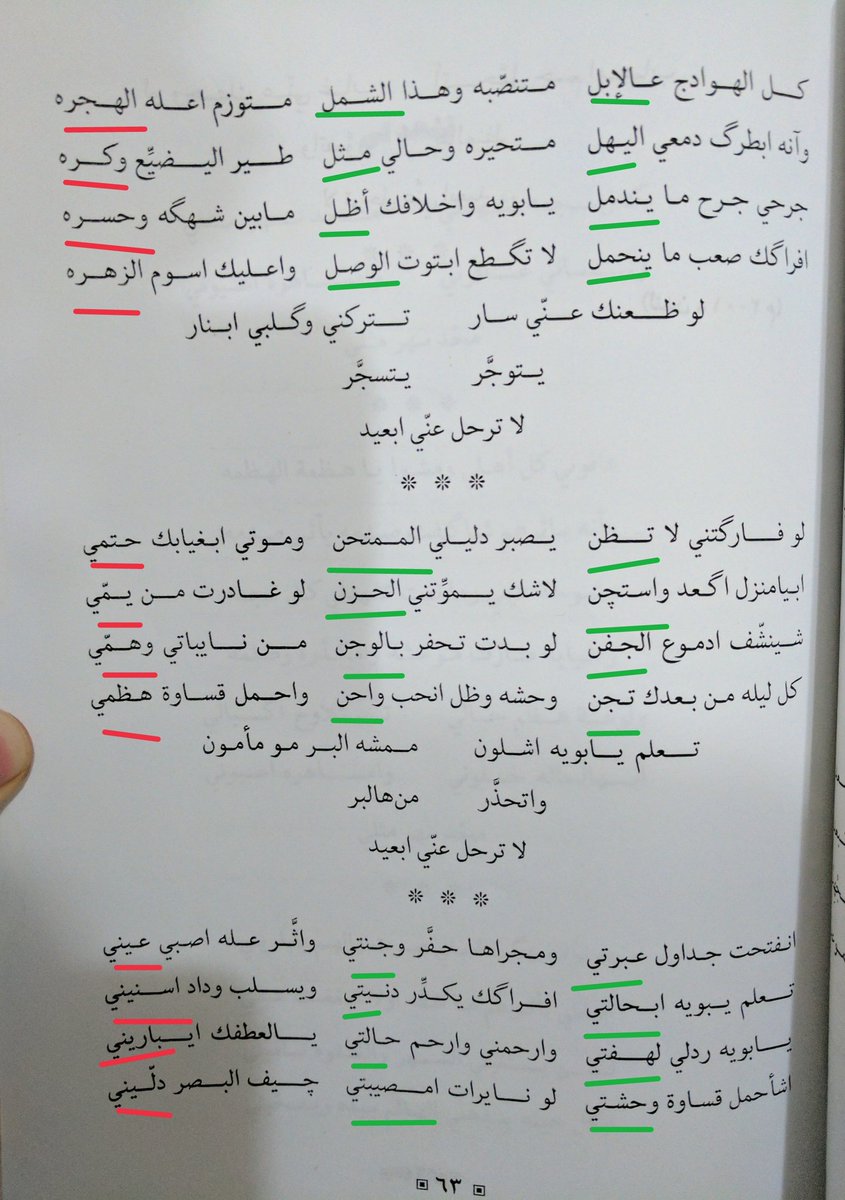 كل الهوادج عالإبل متنصّبه وهذا الشمل متوزم اعله الهجره
وآنه ابطرگ دمعي اليهل متحيره وحالي مثل طير اليضيِّع وكره
جرحي جرح ما يندمل يابويه واخلافك أظل مابين شهگه وحسره
افراگك صعب ما ينحمل لا تگطع ابتوت الوصل واعليك اسوم الزهره
لو ظعنك عنّي سار تتركني وگلبي ابنار
يتوجَّر يتسجَّر
لا ترحل عنّي ابعيد
❊ ❊ ❊
لو فارگتني لا تظن يصبر دليلي الممتحن وموتي ابغيابك حتمي
ابيامنزل اگعد واستچن لاشك يموِّتني الحزن لو غادرت من يمّي
شينشّف ادموع الجفن لو بدت تحفر بالوجن من نايباتي وهمّي
كل ليله من بعدك تجن وحشه وظل انحب واحن واحمل قساوة هظمي
تعلم يابويه اشلون ممشه البر مو مأمون
واتحذَّر من هالبر
لا ترحل عنّي ابعيد
❊ ❊ ❊
انفتحت جداول عبرتي ومجراها حفَّر وجنتي واثَّر عله اصبي عيني
تعلم يبويه ابحالتي افراگك يكدِّر دنيتي ويسلب وداد اسنيني
يابويه ردلي لهفتي وارحمني وارحم حالتي يالعطفك ايباريني
اشأحمل قساوة وحشتي لو نايرات امصيبتي چيف البصر دلّيني
٦٣